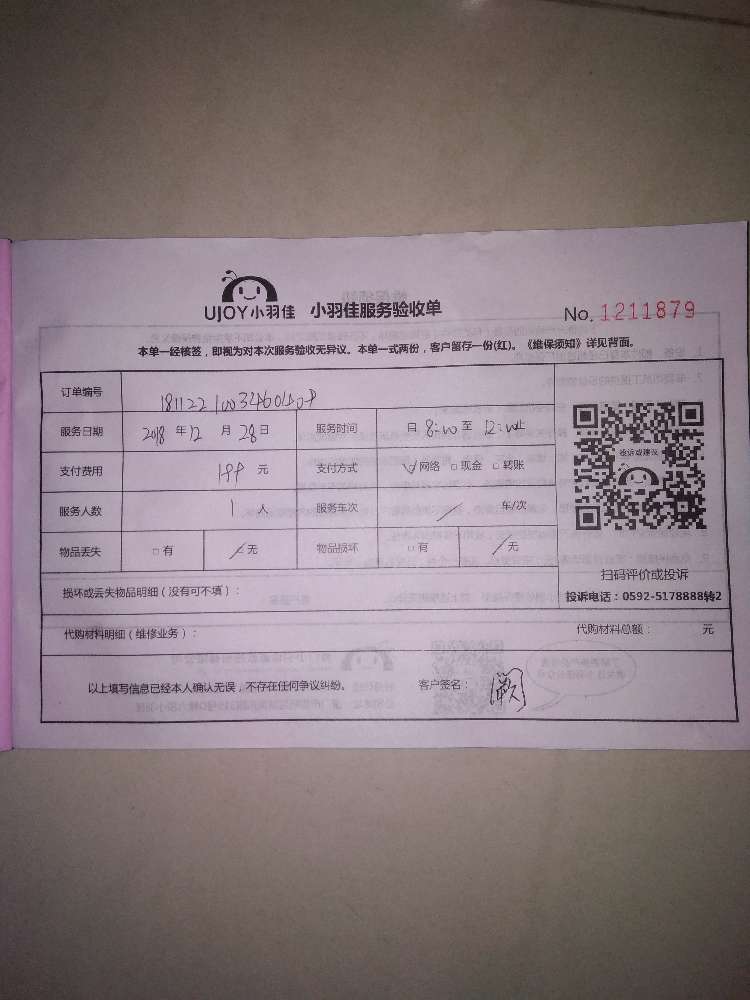 UJOY小羽佳 小羽佳服务验收单 No. 1211879
本单一经核签，即视为对本次服务验收无异议。本单一式两份，客户留存一份(红)。《维保须知》详见背面。
订单编号
服务日期 2018 年 12 月 28 日 服务时间 日 8:00 至 12:00止
支付费用 199 元 支付方式 ☑网络 □现金 □转账
服务人数 1 人 服务车次 / 车/次
物品丢失 □有 ☑无 物品损坏 □有 ☑无
投诉或建议
扫码评价或投诉
投诉电话：0592-5178888转2
损坏或丢失物品明细（没有可不填）：
代购材料明细（维修业务）： 代购材料总额： 元
以上填写信息已经本人确认无误，不存在任何争议纠纷。 客户签名：